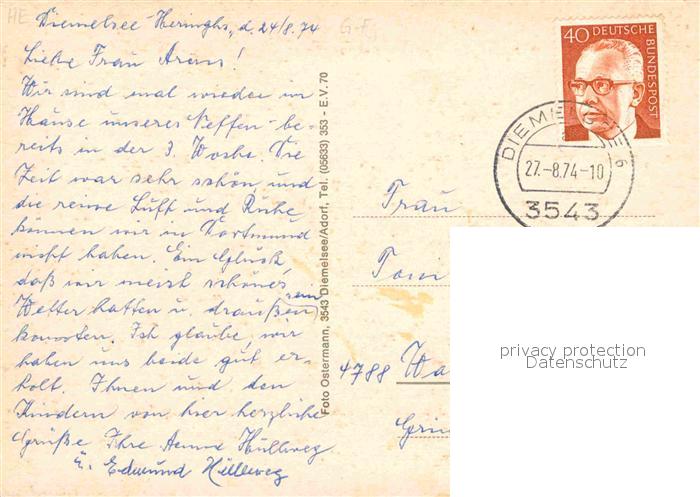 HE
G-F
Diemelsee-Heringhs., d. 24/8. 74
Liebe Frau Arens!
Wir sind mal wieder im
Hause unseres Neffen be-
reits in der 3. Woche. Die
Zeit war sehr schön, und
die reine Luft und Ruhe
können wir in Dortmund
nicht haben. Ein Glück,
daß wir meist schönes
Wetter hatten u. draußen sein
konnten. Ich glaube, wir
haben uns beide gut er-
holt. Ihnen und den
Kindern von hier herzliche
Grüße Ihre Hüllweg
u. Edmund Hüllweg
Foto Ostermann, 3543 Diemelsee/Adorf, Tel. (05633) 353 - E.V. 70
40 DEUTSCHE
BUNDESPOST
DIEMELSEE 6
a
27.-8.74-10
3543
Frau
4788 Wa
privacy protection
Datenschutz